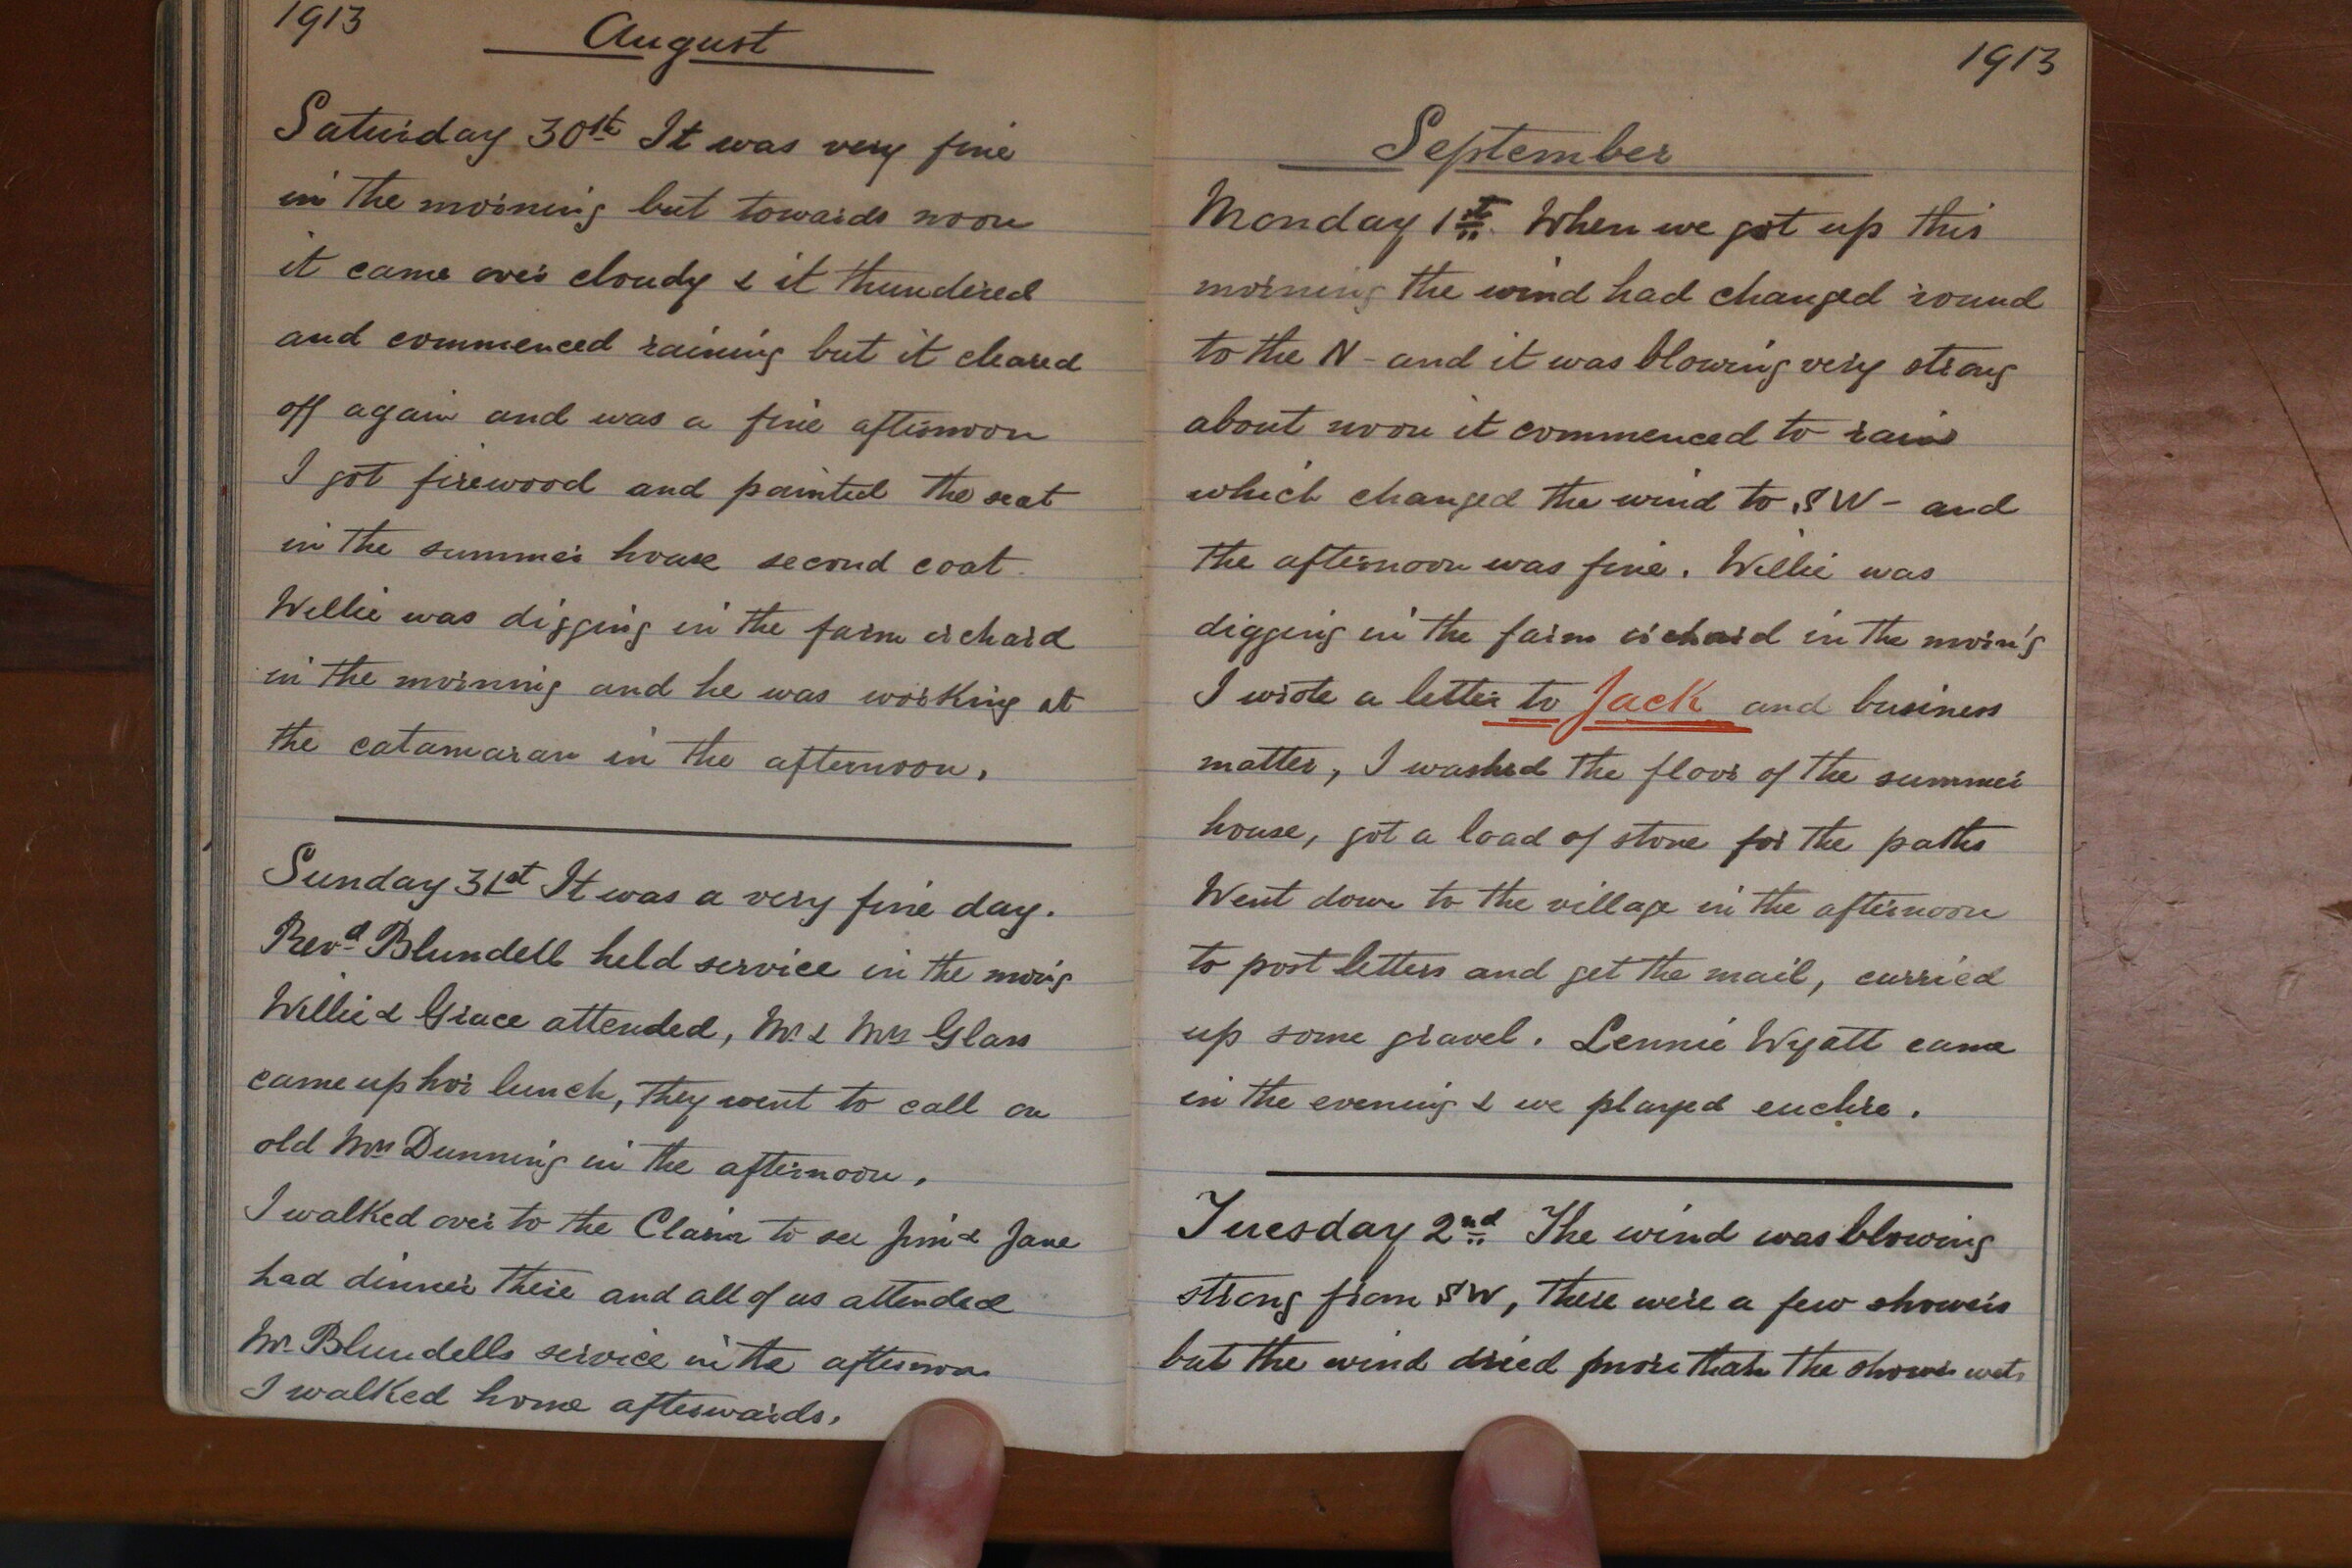 1913
August
Saturday 30th It was very fine
in the morning but towards noon
it came over cloudy & it thundered
and commenced raining but it cleared
off again and was a fine afternoon
I got firewood and painted the seat
in the summer house second coat.
Willie was digging in the farm orchard
in the morning and he was working at
the catamaran in the afternoon.
Sunday 31st It was a very fine day.
Revd Blundell held service in the morng
Willie & Grace attended, Mr & Mrs Glass
came up hor lunch, they went to call on
old Mrs Dunning in the afternoon.
I walked over to the Claim to see Jim & Jane
had dinner there and all of us attended
Mr Blundells service in the afternoon
I walked home afterwards.
1913
September
Monday 1st. When we got up this
morning the wind had changed round
to the N - and it was blowing very strong
about noon it commenced to rain
which changed the wind to SW - and
the afternoon was fine. Willie was
digging in the farm orchard in the morn'g
I wrote a letter to Jack and business
matter, I washed the floor of the summer
house, got a load of stone for the paths
Went down to the village in the afternoon
to post letters and get the mail, carried
up some gravel. Lennie Wyatt came
in the evening & we played euchre.
Tuesday 2nd The wind was blowing
strong from SW, there were a few showers
but the wind dried more than the shower wet.